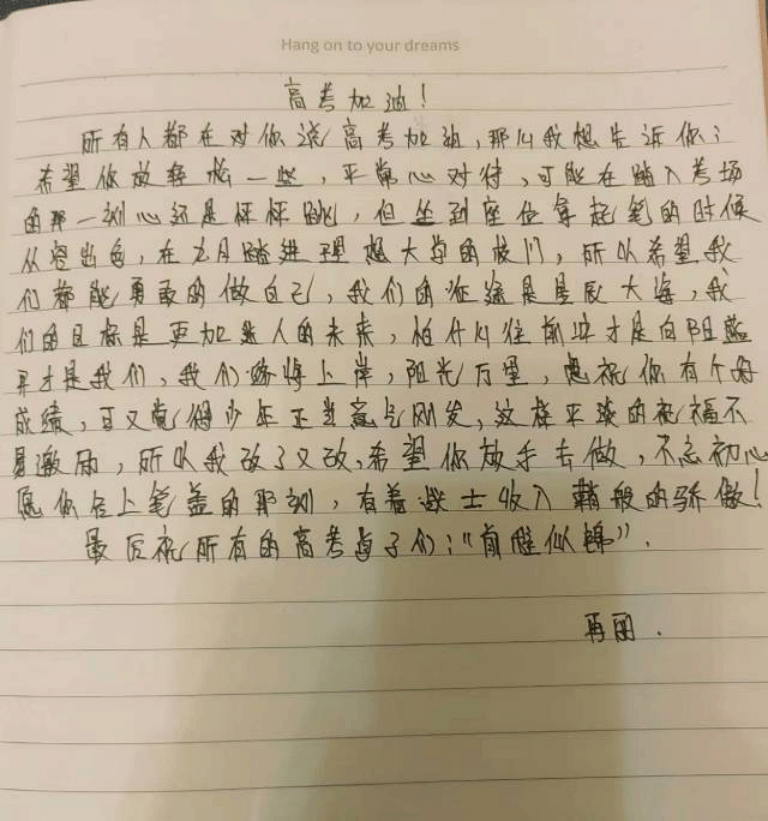 Hang on to your dreams
高考加油！
所有人都在对你说高考加油，那么我想告诉你：
希望你放轻松一些，平常心对待，可能在踏入考场
的那一刻心还是怦怦跳，但坐到座位拿起笔的时候
从容出色，在九月踏进理想大学的校门，所以希望我
们都能勇敢的做自己，我们的征途是星辰大海，我
们的目标是更加迷人的未来，怕什么往前冲才是向阳
才是我们，我们终将上岸，阳光万里，想祝你有个好
成绩，可又觉得少年正当意气风发，这样平淡的祝福不
激励，所以我改了又改，希望你放手去做，不忘初心
愿你合上笔盖的那刻，有着战士收入鞘般的骄傲！
最后祝所有的高考学子们："前程似锦"．
再丽．